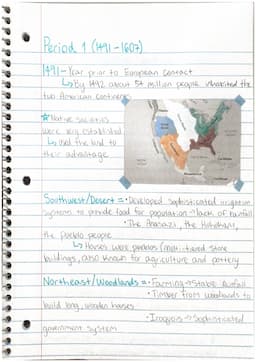 Period 1 (1491-1607)
1491-Year prior to European contact
↳By 1492 about 54 million people inhabited the
two American continents
★Native societies
were very established
↳ used the land to
their advantage
Southwest/Desert = • Developed sophisticated irrigation
systems to provide food for population → lack of rainfall
• The Anasazi, the Hohokam,
the Pueblo people
↳ Houses were pueblos / multi-tiered stone
buildings, also known for agriculture and pottery
Northeast/Woodlands = • Farming → Stable Rainfall
• Timber from woodlands to
build long, wooden houses
• Iroquois → Sophisticated
government system